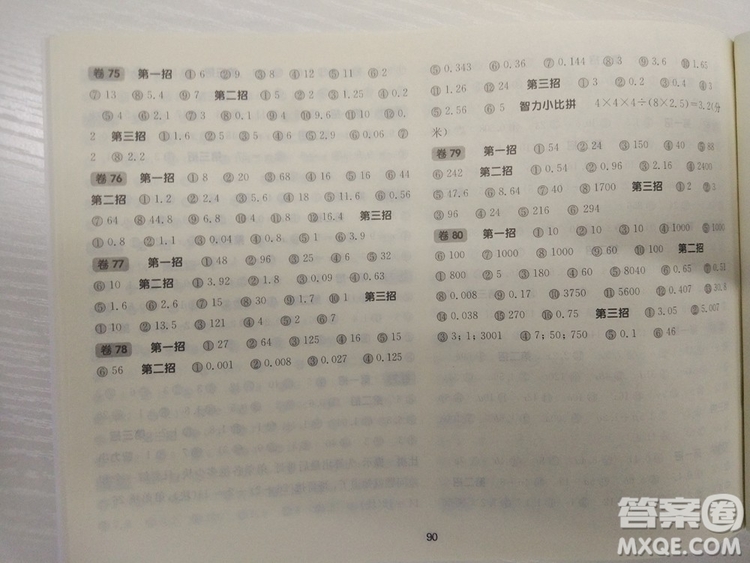 卷75 第一招 ①6 ②9 ③8 ④12 ⑤11 ⑥2
⑦13 ⑧5.4 ⑨7 第二招 ①5 ②2 ③1.25 ④0.2
⑤4 ⑥2.1 ⑦3 ⑧0.1 ⑨4 ⑩9.6 ⑪10 ⑫0.
2 第三招 ①1.6 ②5 ③5 ④6 ⑤2.9 ⑥0.06 ⑦
2 ⑧2.2
卷76 第一招 ①8 ②20 ③68 ④16 ⑤16 ⑥44
第二招 ①1.2 ②2.4 ③5.6 ④18 ⑤11 ⑥0.56
⑦64 ⑧44.8 ⑨6.9 ⑩4 ⑪10 ⑫16.4 第三招
①0.8 ②1.1 ③0.04 ④0.9 ⑤1 ⑥3.9
卷77 第一招 ①48 ②96 ③25 ④6 ⑤32
⑥10 第二招 ①3.92 ②1.8 ③0.09 ④0.63
⑤1.6 ⑥2.6 ⑦15 ⑧30 ⑨1.7 ⑩1 第三招
①10 ②13.5 ③121 ④4 ⑤2 ⑥7
卷78 第一招 ①27 ②64 ③125 ④16 ⑤15
⑥56 第二招 ①0.001 ②0.008 ③0.027 ④0.125
⑤0.343 ⑥0.36 ⑦0.144 ⑧3 ⑨3.6 ⑩1.61
⑪1.26 ⑫24 第三招 ①3 ②0.2 ③0.4 ④3
⑤2.56 ⑥5 智力小比拼 4×4×4÷(8×2.5)=3.2(分
米)
卷79 第一招 ①54 ②24 ③150 ④40 ⑤88
⑥242 第二招 ①0.54 ②0.96 ③12.16 ④2400
⑤47.6 ⑥8.64 ⑦40 ⑧1700 第三招 ①2 ②3
③96 ④24 ⑤216 ⑥294
卷80 第一招 ①10 ②10 ③10 ④1000 ⑤1000
⑥100 ⑦1000 ⑧1000 ⑨60 ⑩100 第二招
①800 ②25 ③4.2 ④60 ⑤8040 ⑥0.65 ⑦0.51
⑧0.008 ⑨0.17 ⑩3750 ⑪5600 ⑫0.407 ⑬30.8
⑭0.038 ⑮270 ⑯0.75 第三招 ①3.05 ②5.007
③3;1;3001 ④7;50;750 ⑤0.1 ⑥46
90
答案圈
MXQE.COM